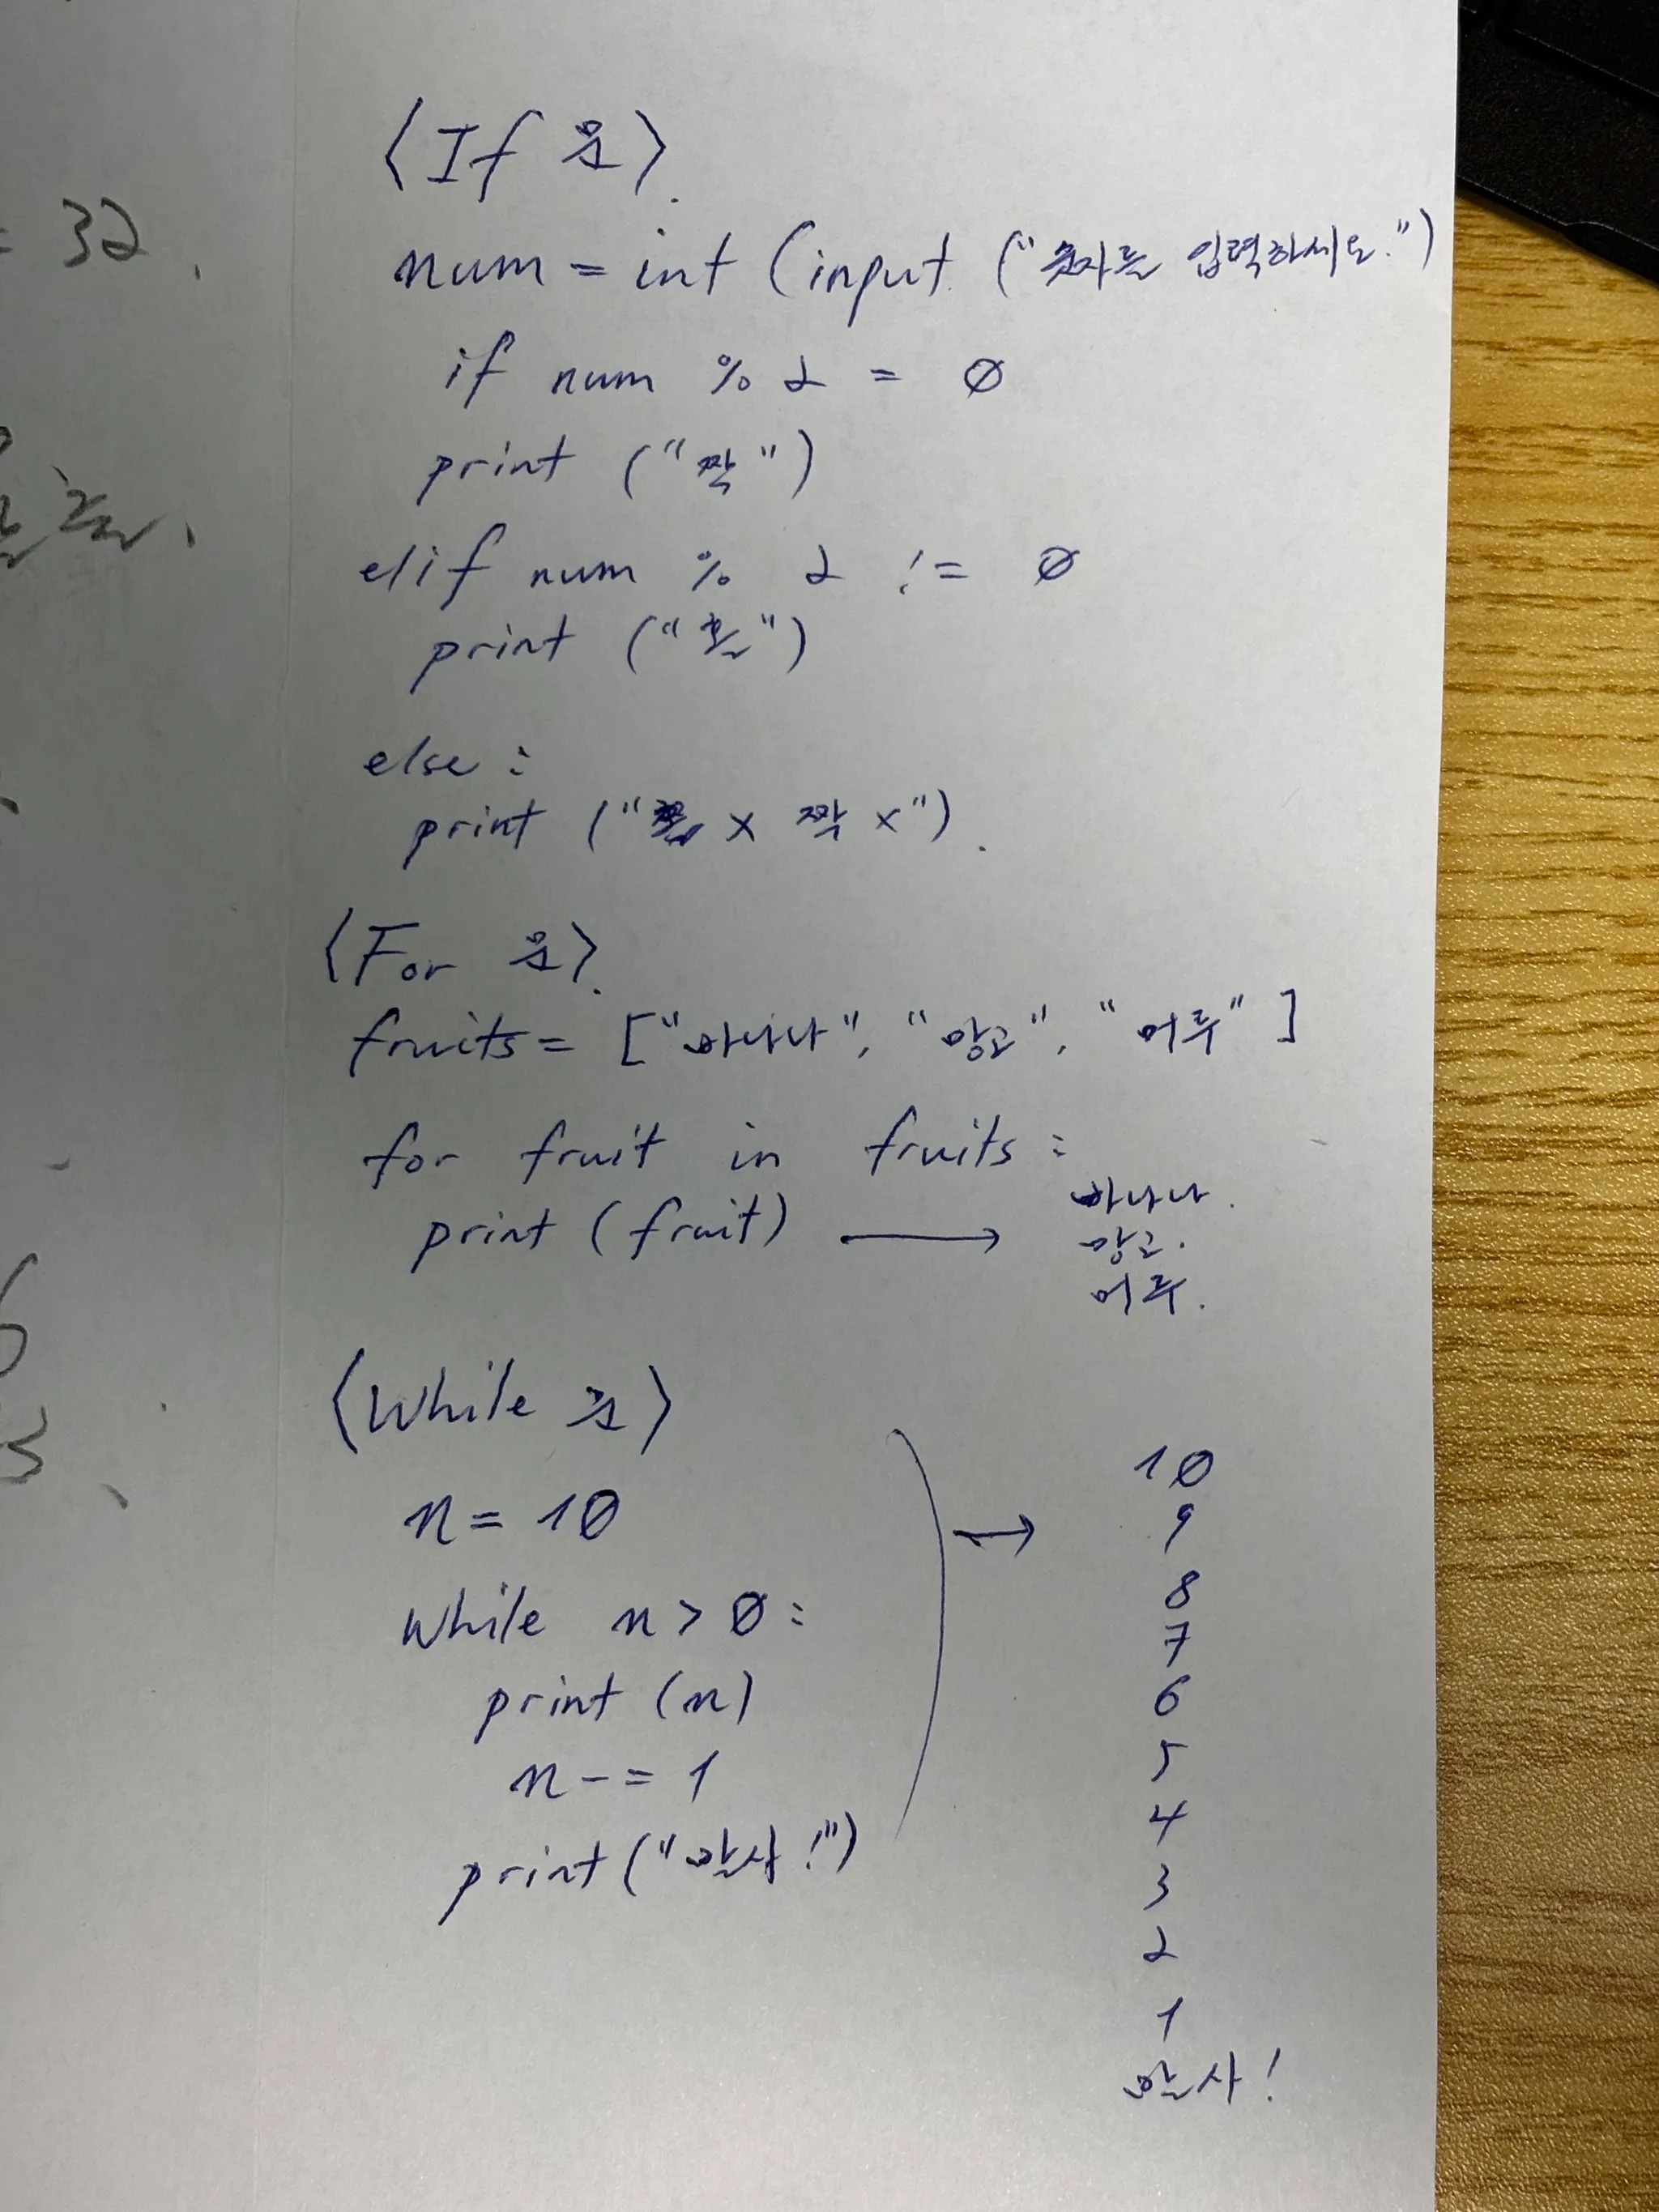 = 32.
<If 문>.
num = int (input ("숫자를 입력하세요.")
if num % 2 = 0
print ("짝")
elif num % 2 != 0
print ("홀")
else :
print ("홀 x 짝 x").
<For 문>.
fruits = ["바나나", "망고", "머루"]
for fruit in fruits :
print (fruit) →
바나나.
망고.
머루.
<While 문>
n = 10
while n > 0 :
print (n)
n -= 1
print ("발사!")
→
10
9
8
7
6
5
4
3
2
1
발사!
6
3